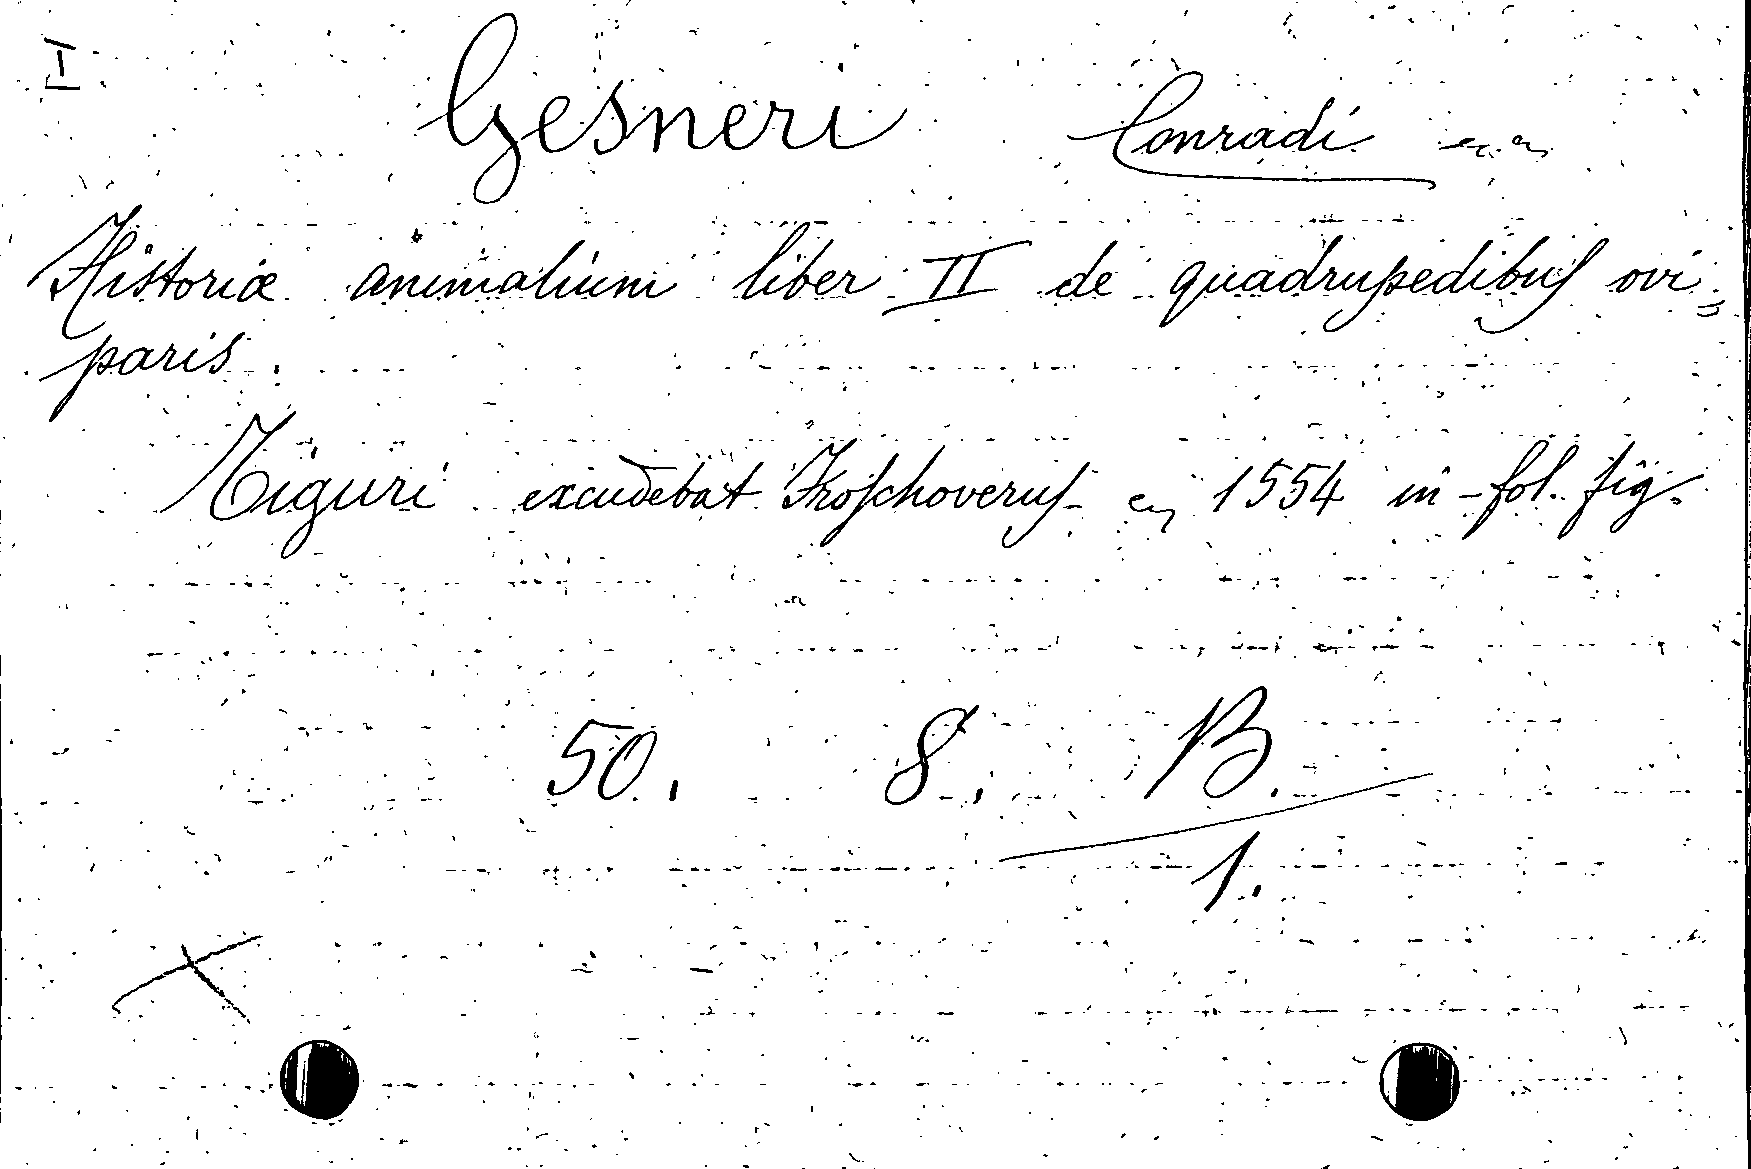 I
Gesneri Conradi
Historiæ animalium liber II de quadrupedibus ovi-
paris.
Tiguri excudebat Froschoverus 1554 in-fol. fig.
50. 8. B.
1.